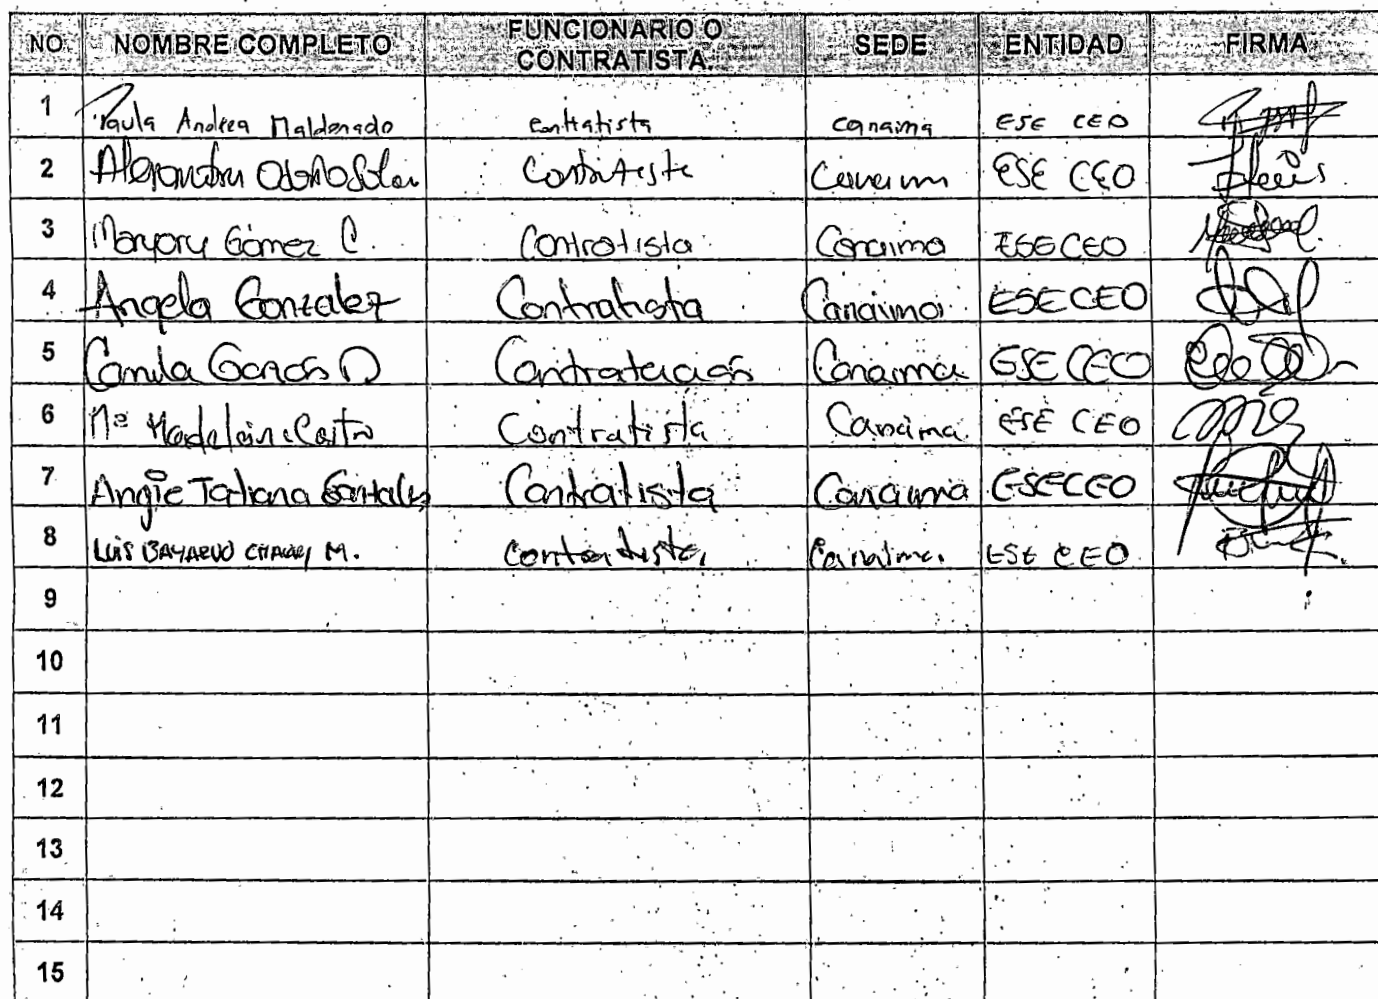 NO. NOMBRE COMPLETO FUNCIONARIO O CONTRATISTA. SEDE ENTIDAD FIRMA
1 Paula Andrea Maldonado contratista canaima ESE CEO
2 Alexandra Contratista Canaima ESE CEO
3 Maryory Gómez C. Contratista Canaima ESE CEO
4 Angela Gonzalez Contratista Canaima ESE CEO
5 Camila Contratación Canaima ESE CEO
6 Mª Contratista Canaima ESE CEO
7 Angie Tatiana Gonzalez Contratista Canaima ESE CEO
8 Luis M. contratista Canaima ESE CEO
9
10
11
12
13
14
15